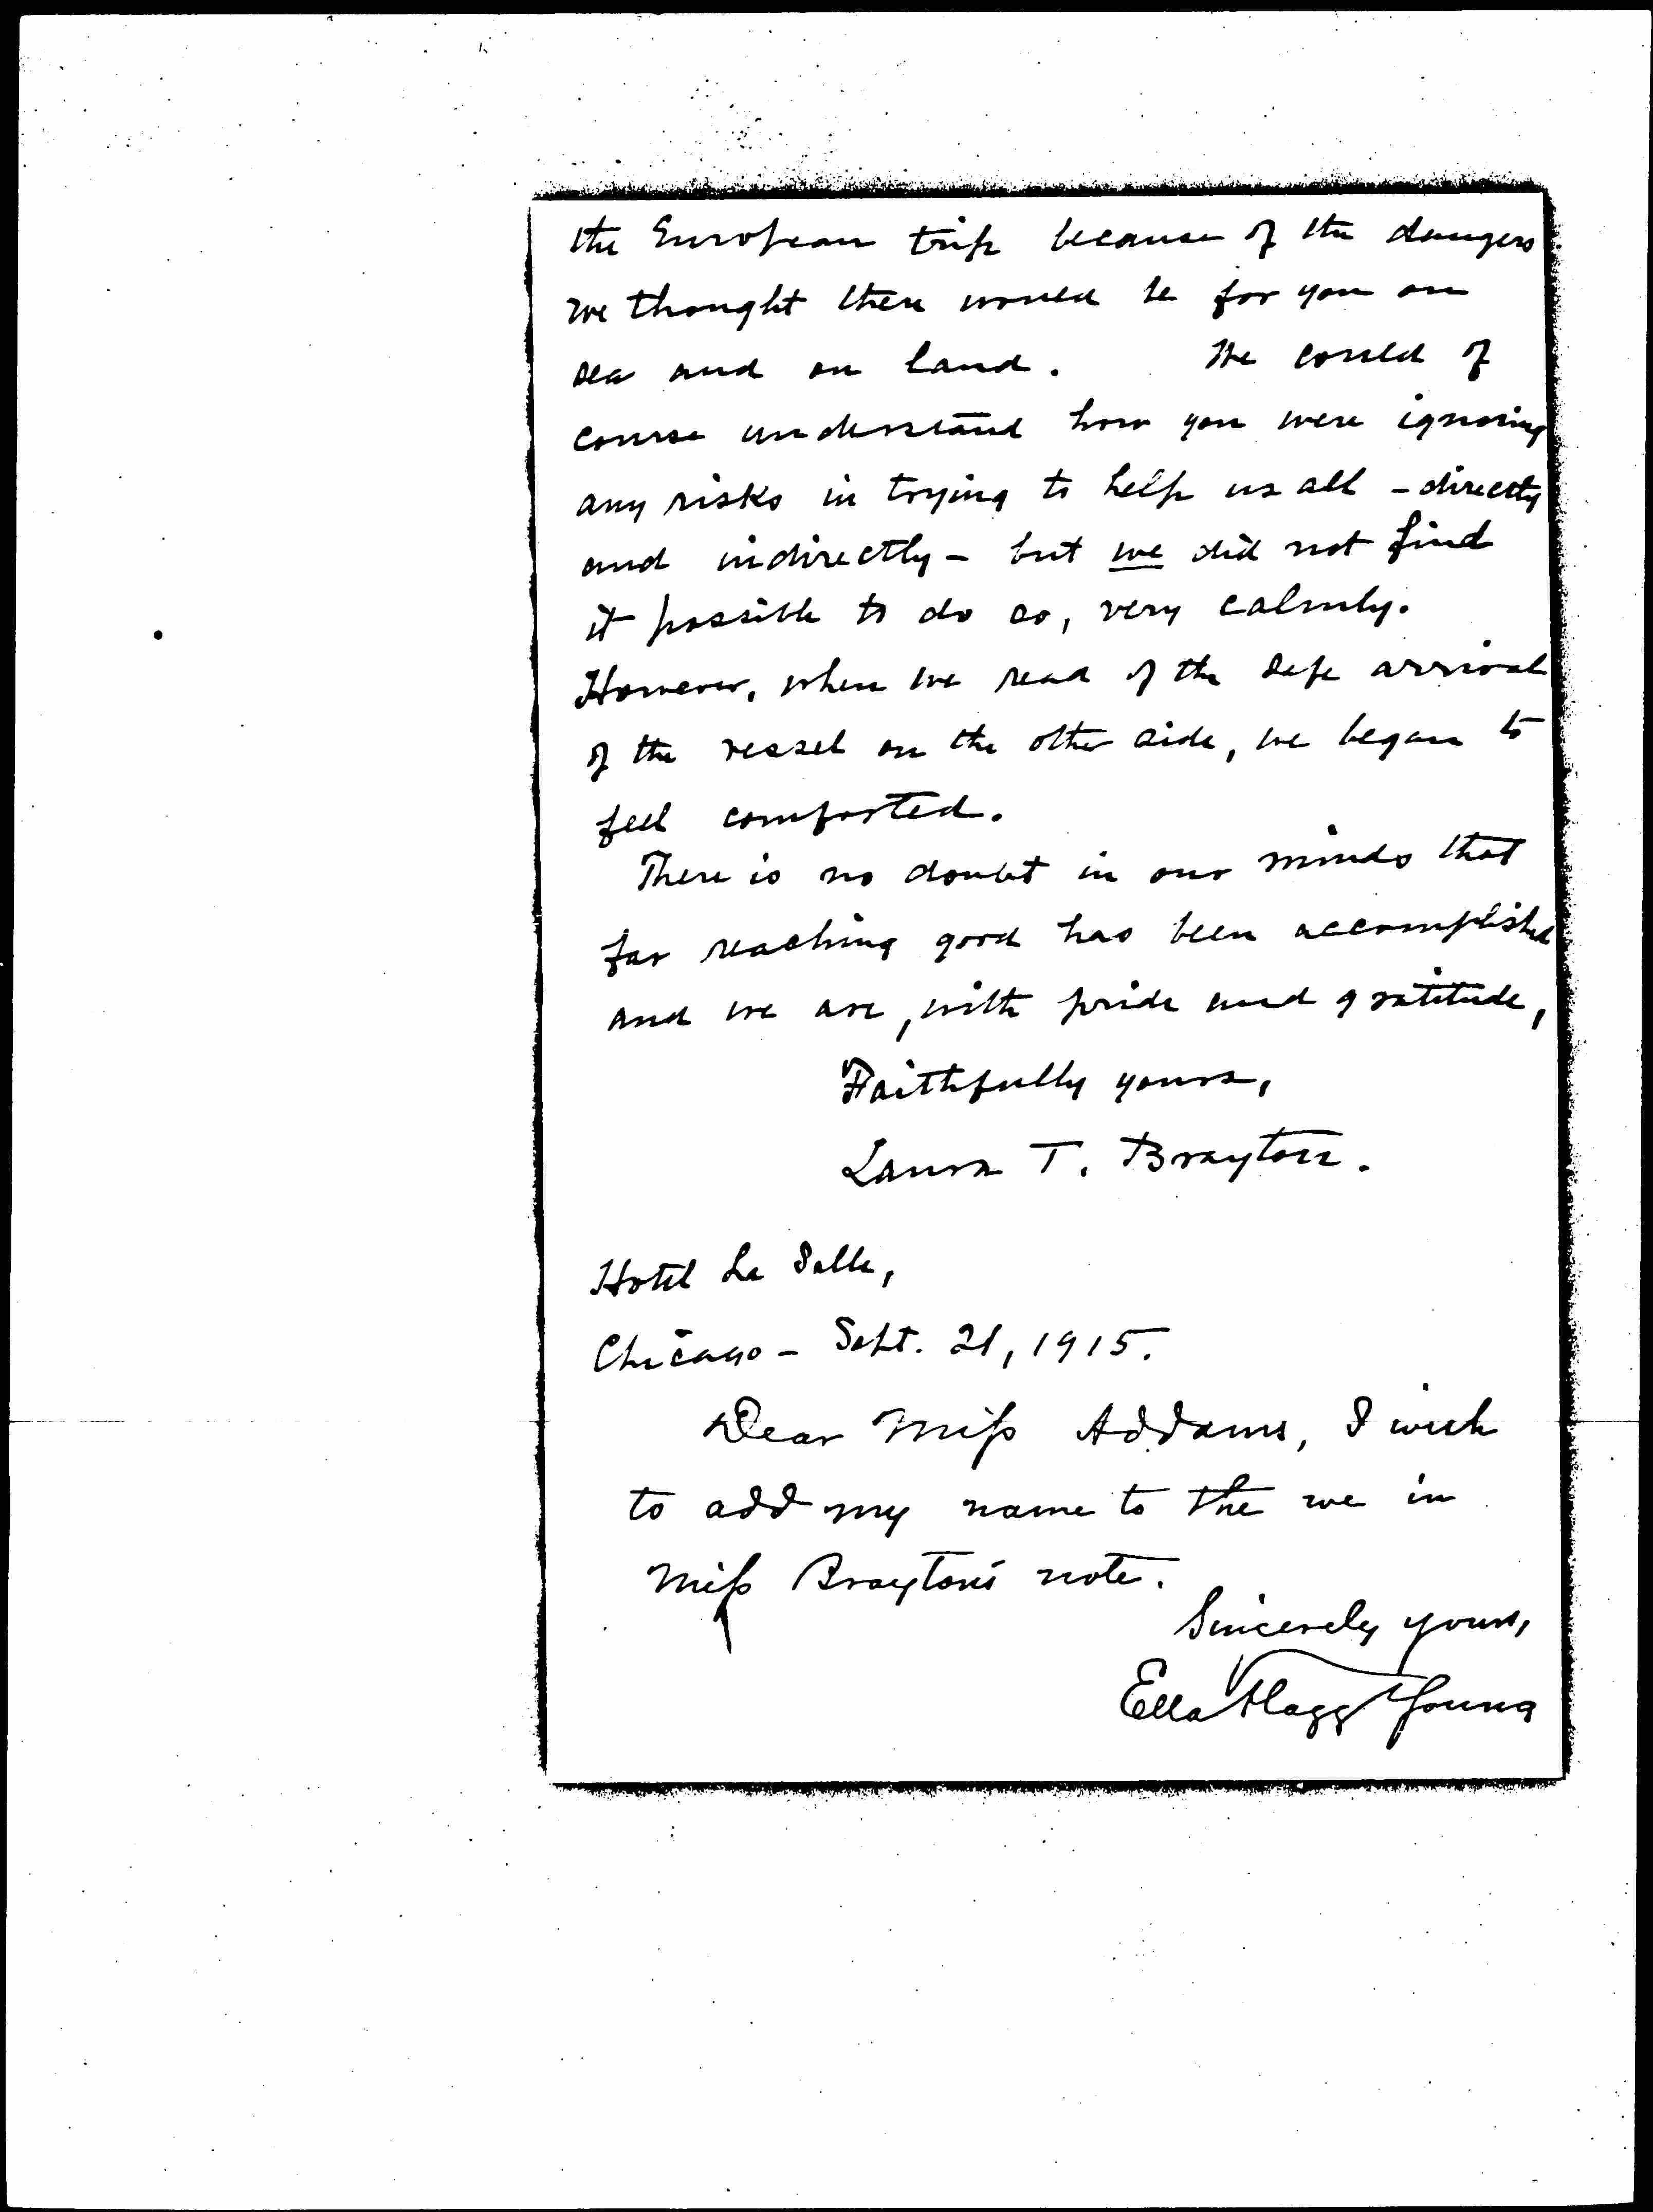 the European trip because of the dangers
we thought there would be for you on
sea and on land. We could of
course understand how you were ignoring
any risks in trying to help us all - directly
and indirectly - but we did not find
it possible to do so, very calmly.
However, when we read of the safe arrival
of the vessel on the other side, we began to
feel comforted.
There is no doubt in our minds that
far reaching good has been accomplished
and we are, with pride and gratitude,
Faithfully yours,
Laura T. Brayton.
Hotel La Salle,
Chicago - Sept. 21, 1915.
Dear Miss Addams, I wish
to add my name to the we in
Miss Brayton's note.
Sincerely yours,
Ella Flagg Young